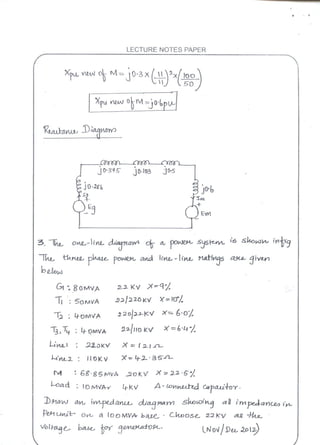 LECTURE NOTES PAPER
Xpu new of M = j0.3 × (11/11)² × (100/50)
Xpu new of M = j0.6pu
Reactance Diagram
j0.375 j0.103 j0.5
j0.286 j0.6
Ig Im
Eg Em
3. The one-line diagram of a power system is shown in fig
The three phase power and line-line ratings are given
below
G : 80MVA 22 KV X=9%
T1 : 50MVA 22/220KV X=10%
T2 : 40MVA 220/22KV X= 6.0%
T3, T4 : 40MVA 22/110KV X=6.4%
Line1 : 220KV X= 121Ω
Line2 : 110KV X= 42.35Ω
M : 68.85MVA 20KV X=22.5%
Load : 10MVAr 4KV Δ-connected capacitor.
Draw an impedance diagram showing all impedances in
Per unit on a 100MVA base. Choose 22KV as the
voltage base for generator. (Nov/Dec 2013)